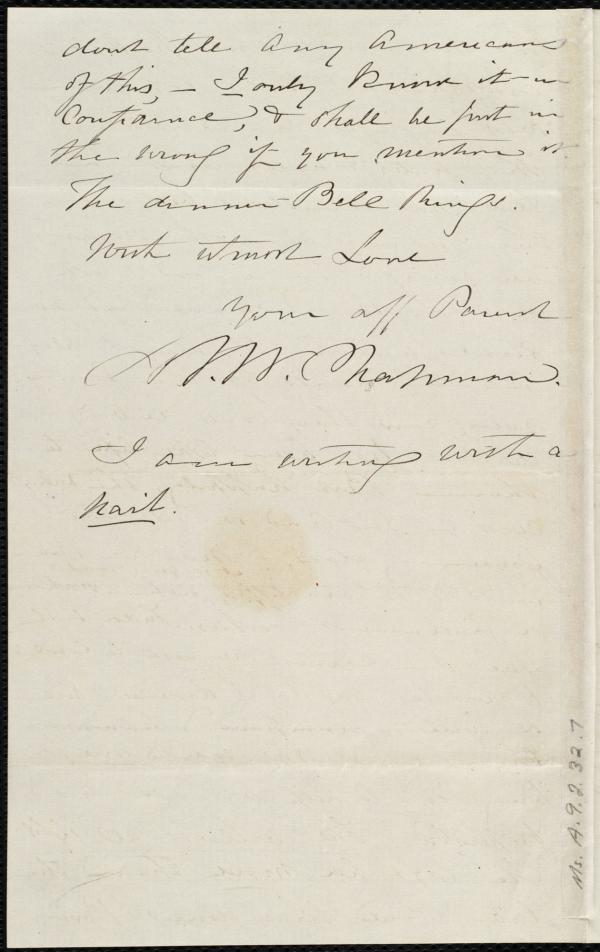 dont tell any Americans
of this, – I only know it in
Confidence, & shall be put in
the wrong if you mention it.
The dinner Bell Rings.
With utmost Love
Your aff Parent
W. Chapman.
I am writing with a
nail.
Ms. A.9.2.32.7